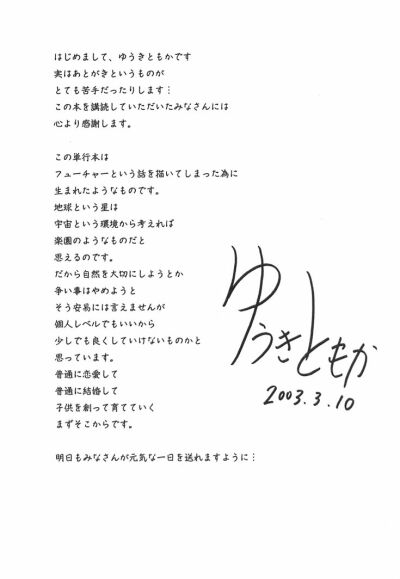 はじめまして、ゆうきともかです
実はあとがきというものが
とても苦手だったりします⋮
この本を講読していただいたみなさんには
心より感謝します。
この単行本は
フューチャーという話を描いてしまった為に
生まれたようなものです。
地球という星は
宇宙という環境から考えれば
楽園のようなものだと
思えるのです。
だから自然を大切にしようとか
争い事はやめようと
そう安易には言えませんが
個人レベルでもいいから
少しでも良くしていけないものかと
思っています。
普通に恋愛して
普通に結婚して
子供を創って育てていく
まずそこからです。
明日もみなさんが元気な一日を送れますように⋮
ゆうきともか
2003.3.10